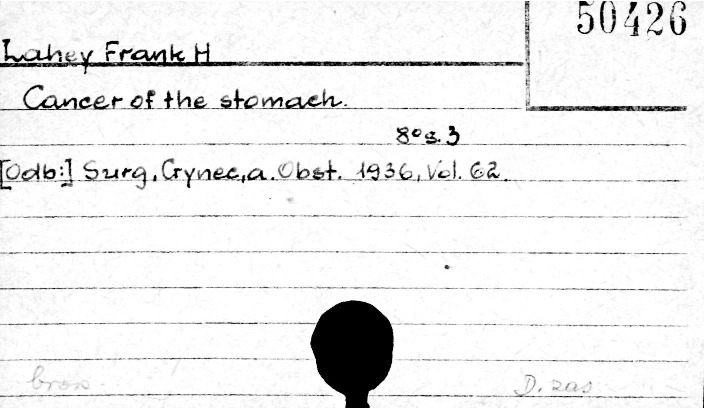 50426
Lahey Frank H
Cancer of the stomach.
8° s. 3
[Odb:] Surg, Gynec, a. Obst. 1936, Vol. 62.
brosz. D. zas